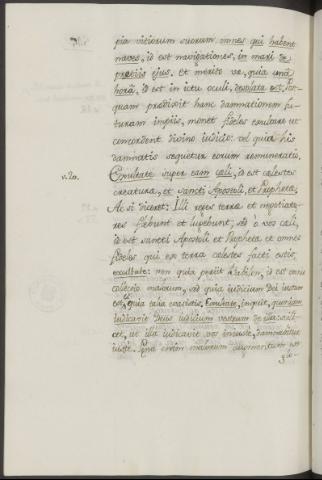 pia vitiorum suorum omnes qui habent
naves, id est navigationes, in mari de
pretiis ejus. et merito ve, quia una
hora, id est in ictu oculi, desolata est. Post-
quam prædixit hanc damnationem fu-
turam impiis, monet fideles exultare et
concordent divino iudicio: vel quia his
damnatis sequetur eorum remuneratio.
v. 20. Exultate super eam cæli, id est cælestes
creaturæ, et sancti Apostoli, et Prophetæ.
Ac si diceret: Illi reges terræ et negotiato-
res flebunt et lugebunt, sed o vos cæli,
id est sancti Apostoli et Prophetæ et omnes
fideles qui ex terra cælestes facti estis,
exultate: non quia periit id est omnis
collectio malorum, sed quia iudicium Dei iustum
est, quia talia exercistis, Exultate, inquit, quoniam
iudicavit Deus iudicium vestrum de illa: scili-
cet, ut illa iudicavit vos iniuste, damnaretur
iuste. Qua enim malorum augmentum ve-